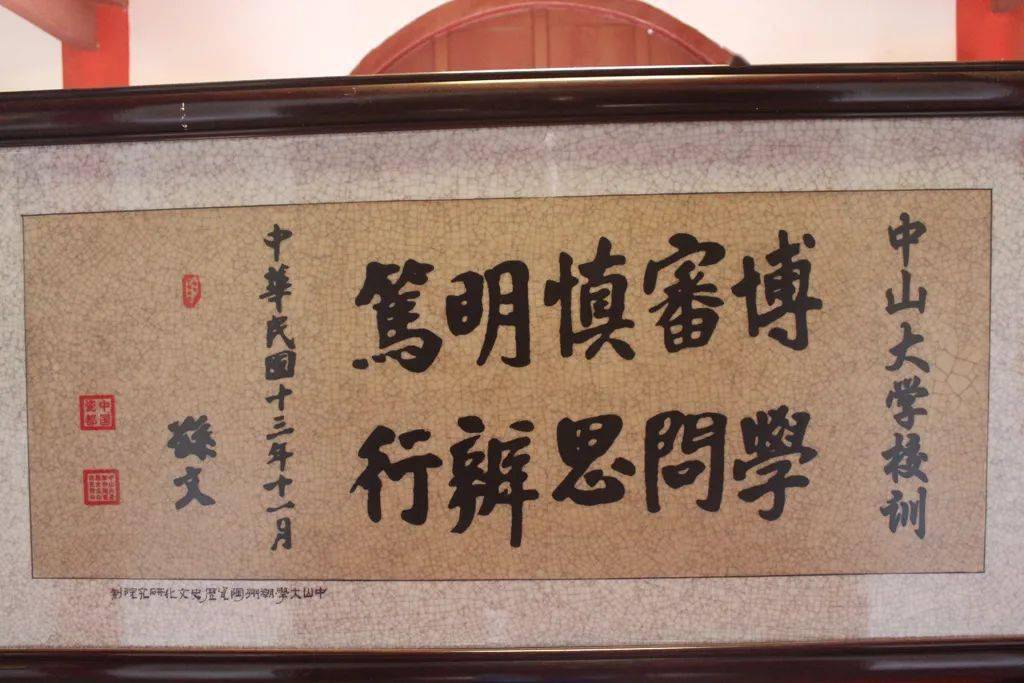 中山大学校训
博學
審問
慎思
明辨
篤行
中華民國十三年十一月
孫文
中国
瓷都
中山大學潮州陶瓷歷史文化研究院制